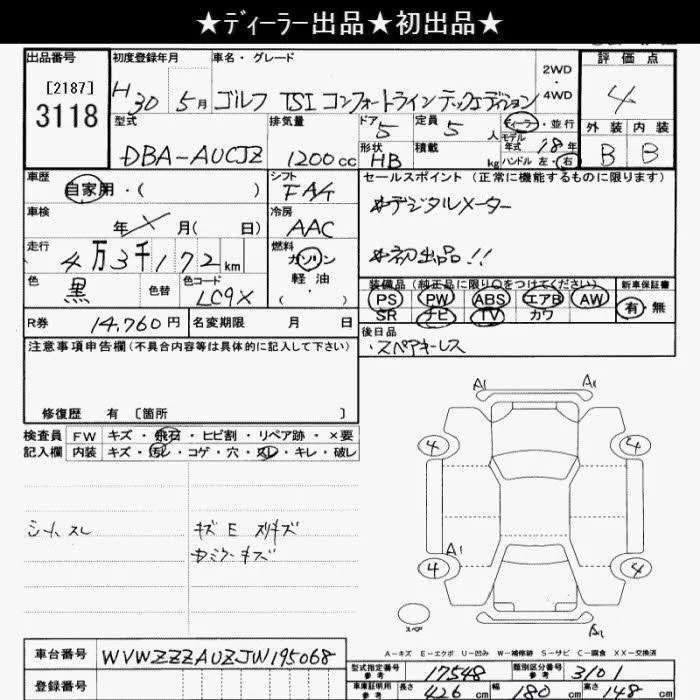 ★ディーラー出品★初出品★
出品番号
[2187]
3118
初度登録年月
H30 5月
車名・グレード
ゴルフ TSI コンフォートラインテックエディション
2WD
・
4WD
評価点
4
外装 内装
B B
型式
DBA-AUCJZ
排気量
1200cc
ドア 5
定員 5人
ディーラー・並行
モデル年式 18年
形状 HB
積載 kg
ハンドル 左・右
車歴
自家用・( )
シフト
FA/4
セールスポイント(正常に機能するものに限ります)
車検
年 月( 日)
冷房
AAC
#デジタルメーター
走行
4万3千172km
燃料
ガソリン
軽油
( )
#初出品!!
色
黒
色替
色コード
LC9X
装備品(純正品に限り○をつけてください)
新車保証書
PS PW ABS エアB AW
有・無
SR ナビ TV カワ
R券 14,760円
名変期限 月 日
後日品
・スペアキーレス
注意事項申告欄(不具合内容等は具体的に記入して下さい)
修復歴 有 [箇所 ]
検査員
記入欄
FW キズ・飛石・ヒビ割・リペア跡・×要
内装 キズ・汚レ・コゲ・穴・スレ・キレ・破レ
A1
4 4
A1
4 4
スペア
B2
シートスレ
キズ E スリキズ
A-キズ E-エクボ U-凹み W-補修跡 S-サビ C-腐食 XX-交換済
車台番号
WVWZZZAUZJW195068
登録番号
型式指定番号 参考 17548
類別区分番号 参考 3101
車庫証明用 参考 長さ 426cm 幅 180cm 高さ 148cm